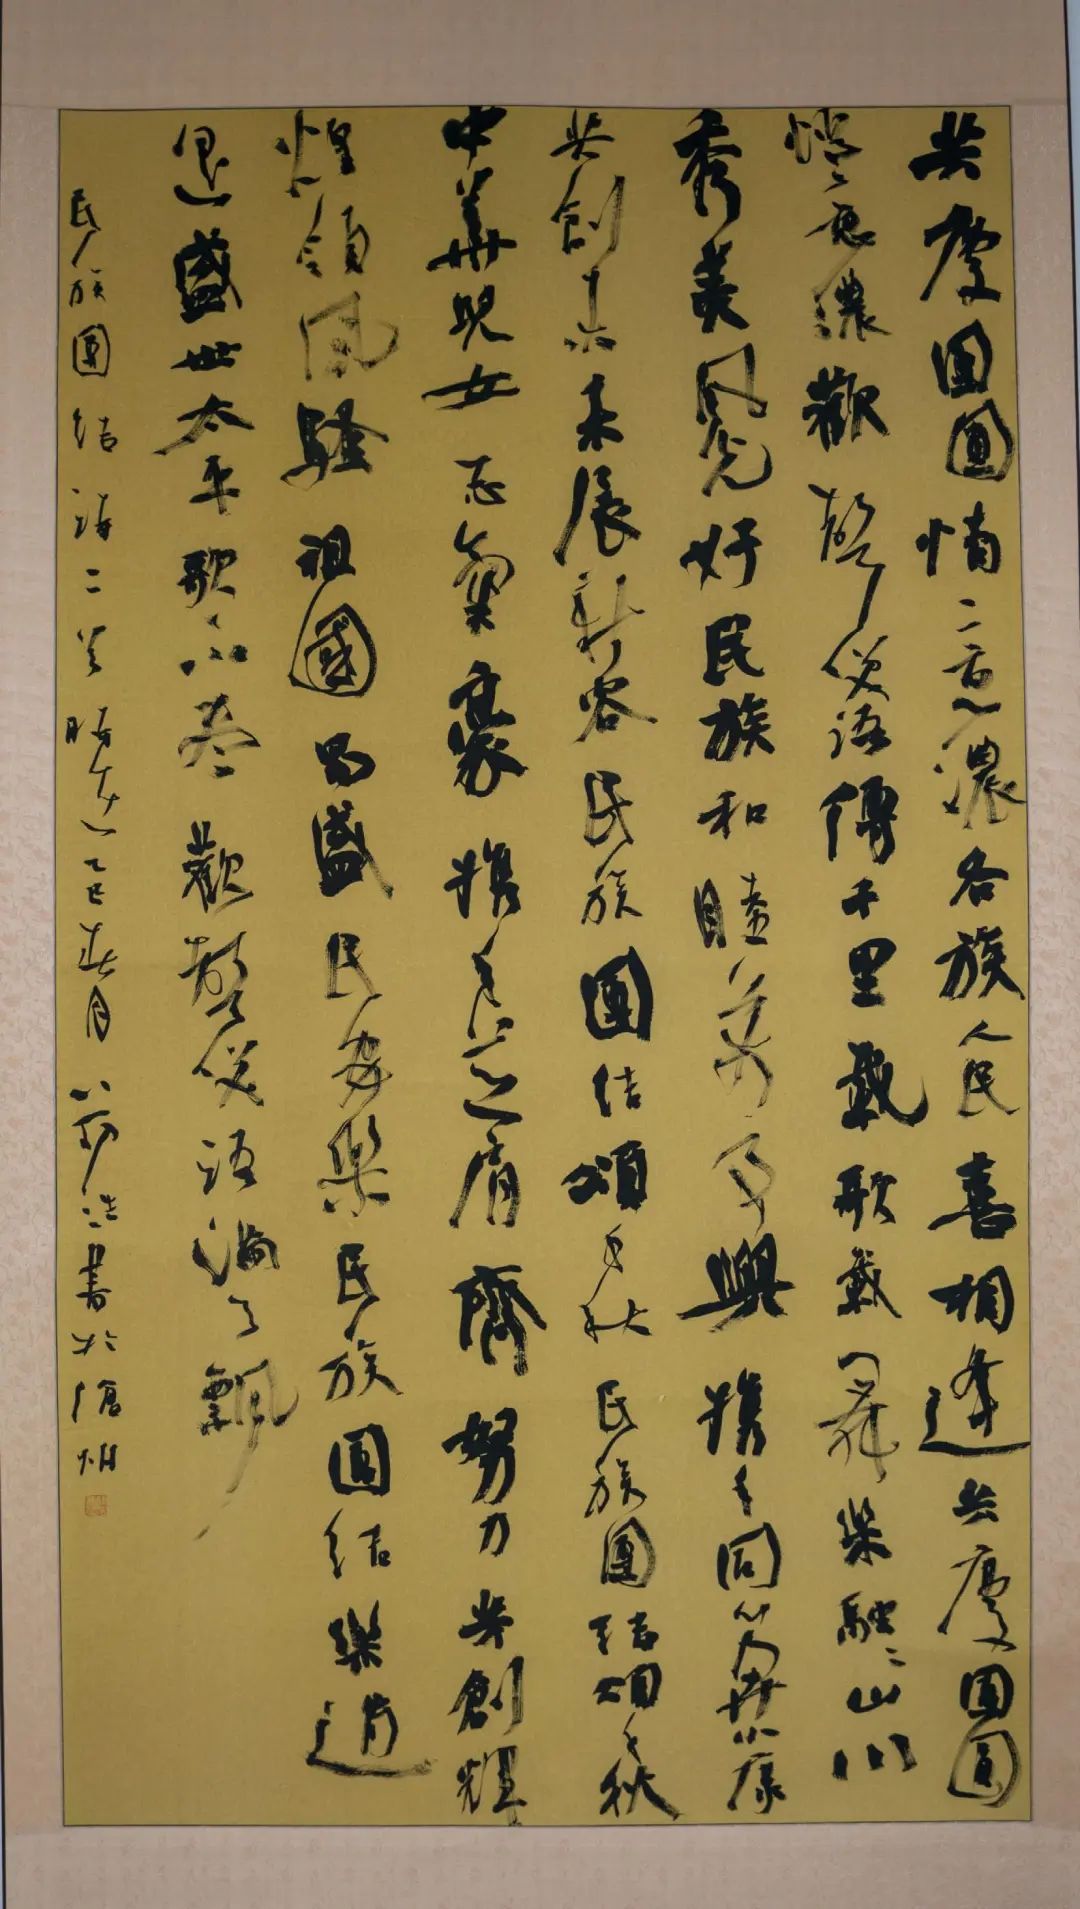 共慶團圓情意濃各族人民喜相逢共慶團圓
情意濃歡聲笑語傳千里載歌載舞樂融融山川
秀美風光好民族和睦萬事興攜手同心奔小康
共創未來展新容民族團結頌千秋民族團結頌千秋
中華兒女志氣豪攜手並肩齊努力共創輝
煌領風騷祖國昌盛民安樂民族團結樂逍
遙盛世太平歌不盡歡聲笑語滿
民族團結詩二首 乙巳春月 書於滄州